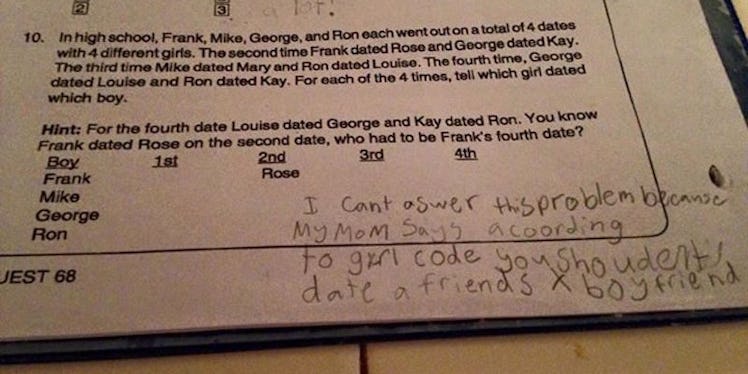 2 3 a lot!
10. In high school, Frank, Mike, George, and Ron each went out on a total of 4 dates
with 4 different girls. The second time Frank dated Rose and George dated Kay.
The third time Mike dated Mary and Ron dated Louise. The fourth time, George
dated Louise and Ron dated Kay. For each of the 4 times, tell which girl dated
which boy.
Hint: For the fourth date Louise dated George and Kay dated Ron. You know
Frank dated Rose on the second date, who had to be Frank's fourth date?
Boy 1st 2nd 3rd 4th
Frank Rose
Mike
George
Ron
I cant aswer this problem because
My Mom Says acoording
to girl code you shoudent
date a friends X boyfriend
UEST 68